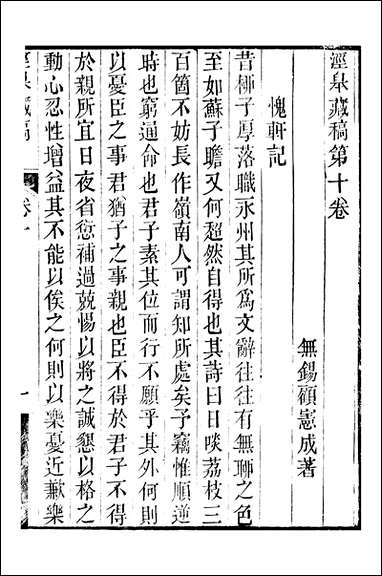 涇臯藏稿第十卷
無錫顧憲成著
愧軒記
昔柳子厚落職永州其所爲文辭往往有無聊之色
至如蘇子瞻又何超然自得也其詩曰日啖荔枝三
百箇不妨長作嶺南人可謂知所處矣予竊惟順逆
時也窮通命也君子素其位而行不願乎其外何則
以憂臣之事君猶子之事親也臣不得於君子不得
於親所宜日夜省愆補過兢惕以將之誠懇以格之
動心忍性增益其不能以俟之何則以樂憂近歉樂
涇臯藏稿
卷十
一